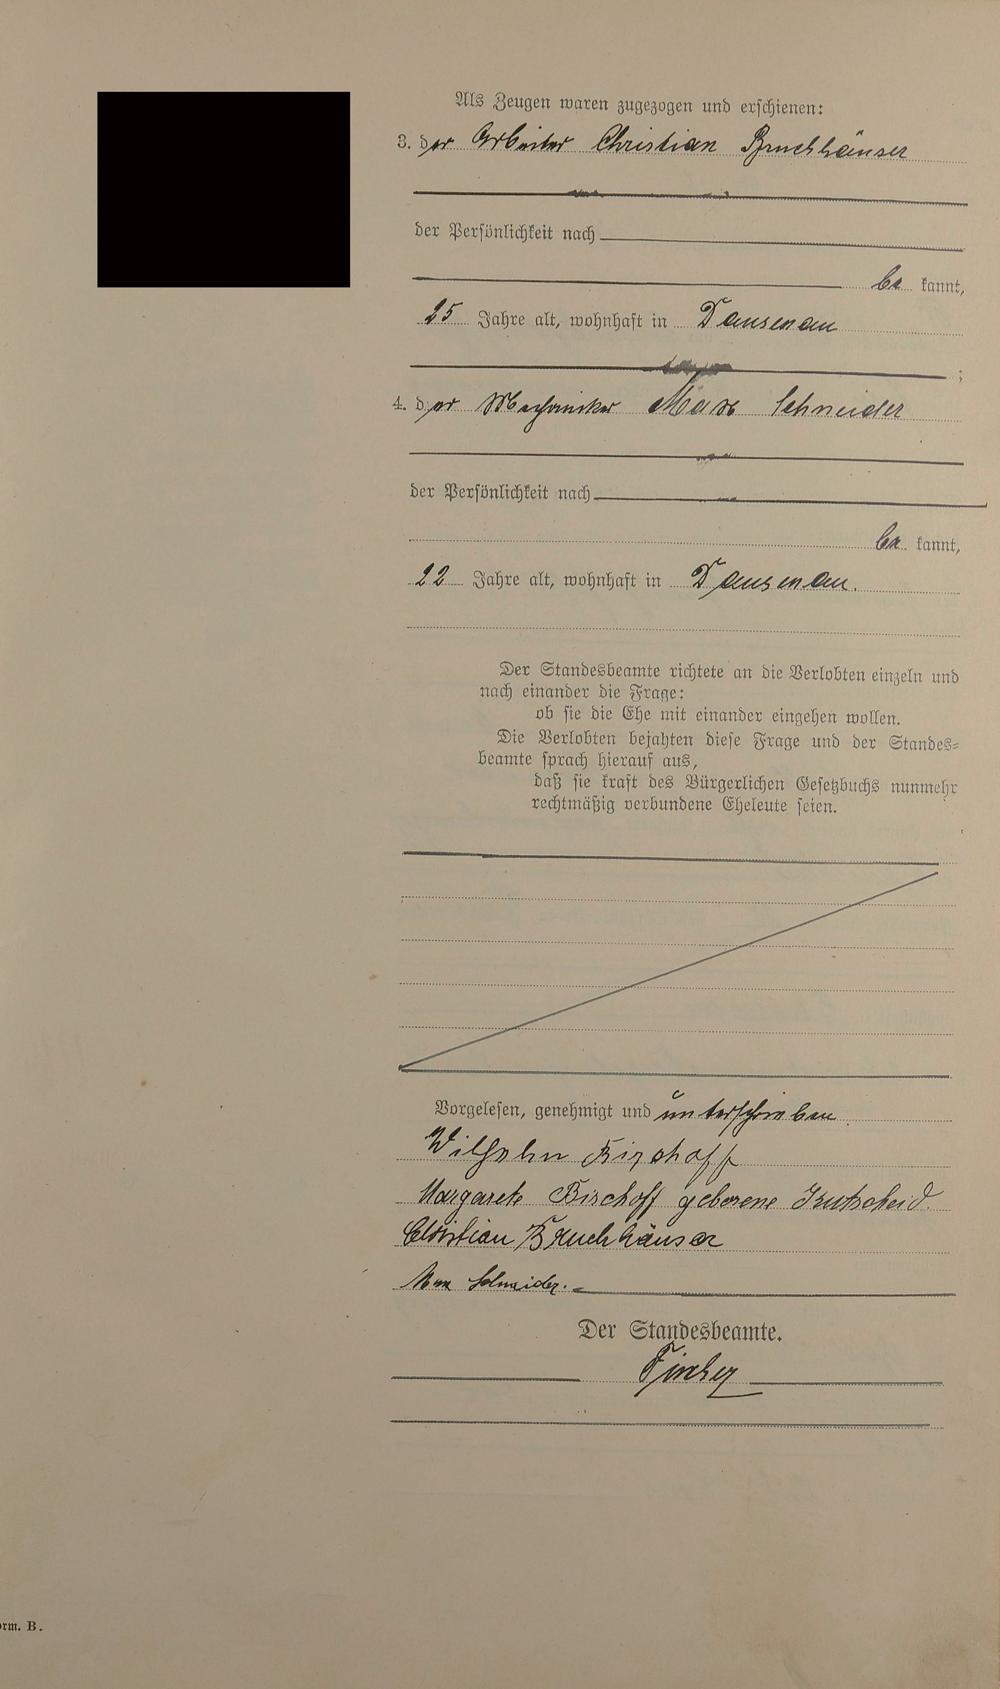 Als Zeugen waren zugezogen und erschienen:
3. der Arbeiter Christian Bruchhäuser
der Persönlichkeit nach
be kannt,
25 Jahre alt, wohnhaft in Dausenau
;
4. der Mechaniker Max Schneider
der Persönlichkeit nach
be kannt,
22 Jahre alt, wohnhaft in Dausenau.
Der Standesbeamte richtete an die Verlobten einzeln und
nach einander die Frage:
ob sie die Ehe mit einander eingehen wollen.
Die Verlobten bejahten diese Frage und der Standes=
beamte sprach hierauf aus,
daß sie kraft des Bürgerlichen Gesetzbuchs nunmehr
rechtmäßig verbundene Eheleute seien.
Vorgelesen, genehmigt und unterschrieben
Wilhelm Bischoff
Margarete Bischoff geborene
Christian Bruchhäuser
Max Schneider.
Der Standesbeamte.
orm. B.